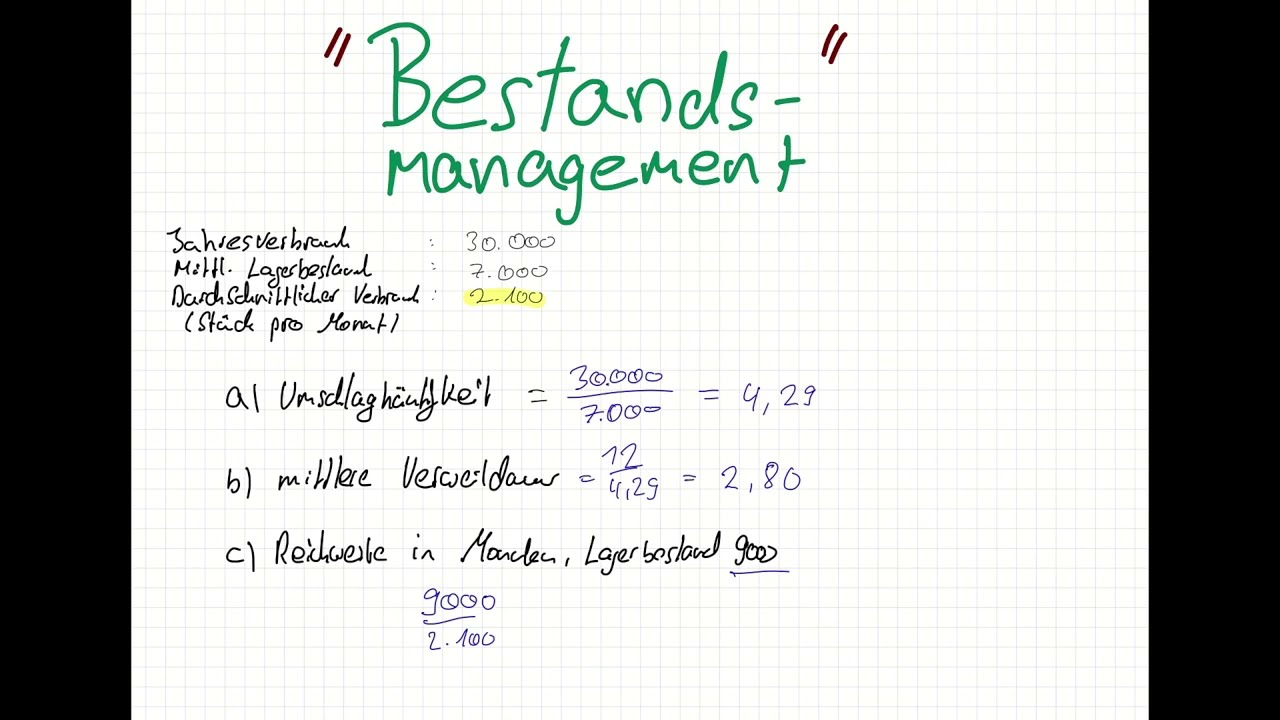 "Bestands-"
management
Jahresverbrauch : 30.000
Mittl. Lagerbestand : 7.000
Durchschnittlicher Verbrauch : 2.100
(Stück pro Monat)
a) Umschlaghäufigkeit = 30.000 / 7.000 = 4,29
b) mittlere Verweildauer = 12 / 4,29 = 2,80
c) Reichweite in Monaten, Lagerbestand 9000
9000
2.100